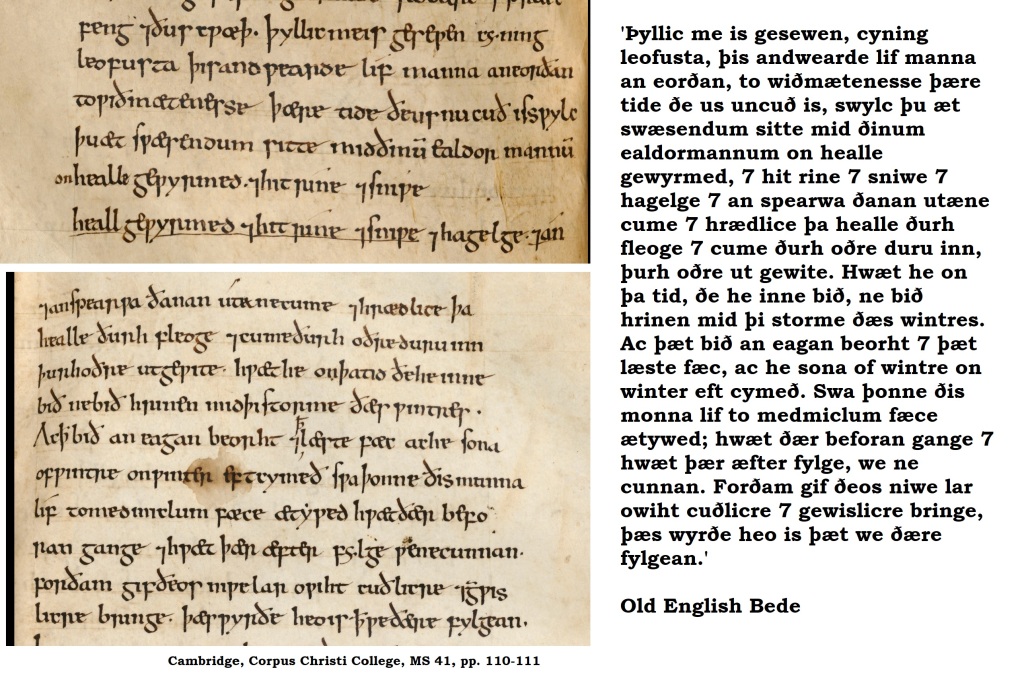 feng ⁊ðus cƿæþ· þyllic me is geseƿen cyning
leofusta þis andƿearde lif manna aneorðan
toƿiðmætenesse þære tide ðeusuncuð issƿylc
þuæt sƿæsendum sitte midðinū ealdor mannū
onhealle geƿyrmed· ⁊hit rine ⁊sniƿe
heall geƿyrmed ⁊hit rine ⁊sniƿe ⁊hagelge· ⁊an
⁊anspearƿa ðanan utænecume ⁊hrædlice þa
healle ðurh fleoge ⁊cumeðurh oðreduruinn
þurhoðre utgeƿite· hƿæthe onþatid ðeheinne
bið nebið hrinen midþistorme ðæs ƿintres·
Acꝥbið an eagan beorht ⁊ꝥlæste fæc ache sona
ofƿintre onƿinter eftcymeð sƿaþonne ðismonna
lif tomedmiclum fæce ætyƿed hƿætðær befo
ran gange ⁊hƿæt þær æfter fylge ƿenecunnan·
forðam gifðeos niƿelar oƿiht cuðlicre ⁊geƿis
licre bringe· þæsƿyrðe heois ꝥƿeðære fylgean·
'Þyllic me is gesewen, cyning
leofusta, þis andwearde lif manna
an eorðan, to wiðmætenesse þære
tide ðe us uncuð is, swylc þu æt
swæsendum sitte mid ðinum
ealdormannum on healle
gewyrmed, 7 hit rine 7 sniwe 7
hagelge 7 an spearwa ðanan utæne
cume 7 hrædlice þa healle ðurh
fleoge 7 cume ðurh oðre duru inn,
þurh oðre ut gewite. Hwæt he on
þa tid, ðe he inne bið, ne bið
hrinen mid þi storme ðæs wintres.
Ac þæt bið an eagan beorht 7 þæt
læste fæc, ac he sona of wintre on
winter eft cymeð. Swa þonne ðis
monna lif to medmiclum fæce
ætywed; hwæt ðær beforan gange 7
hwæt þær æfter fylge, we ne
cunnan. Forðam gif ðeos niwe lar
owiht cuðlicre 7 gewislicre bringe,
þæs wyrðe heo is þæt we ðære
fylgean.'
Old English Bede
Cambridge, Corpus Christi College, MS 41, pp. 110-111